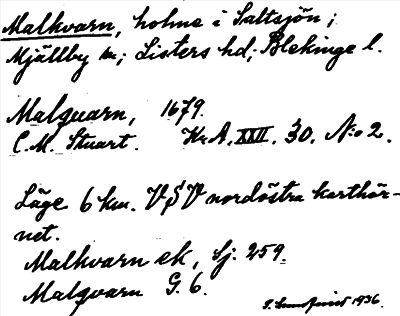 Malkvarn, holme i Saltsjön;
Mjällby sn; Listers hd; Blekinge l.
Malquarn, 1679.
C. M. Stuart. Kr. A. XXII. 30. N:o 2.
Läge 6 km. VSV nordöstra karthör-
net.
Malkvarn ek, Sj. 259.
Malqvarn G. 6.
1936.